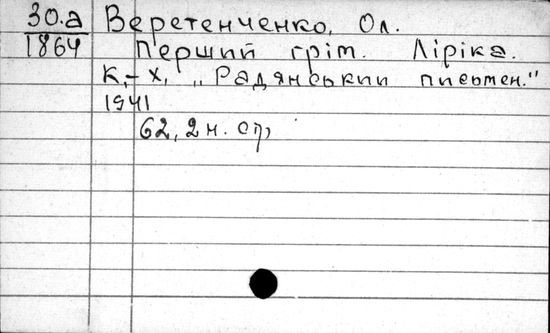 30.а Веретенченко, Ол.
1864 Перший грім. Лірика.
К.-Х. „Радянський письмен."
1941
62, 2 н. ст,